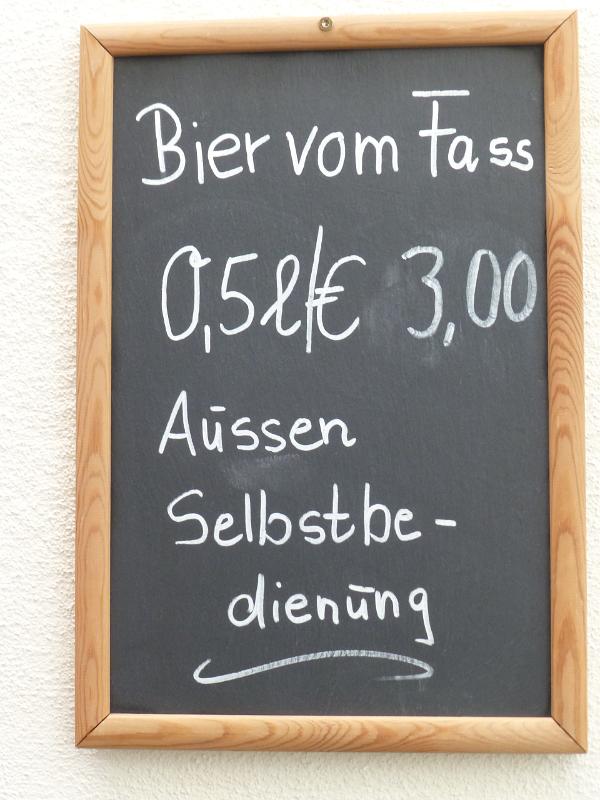 Bier vom Fass
0,5 l/€ 3,00
Aussen
Selbstbe-
dienung